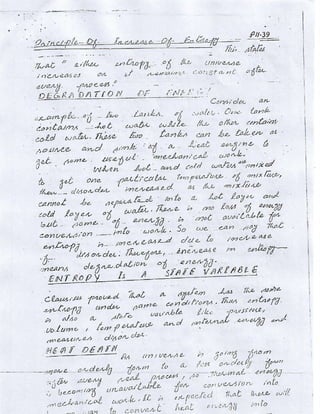 P11-39
Principle Of Increase Of Entropy
This states
that "either entropy of the universe
increases or it remains constant after
every process"
DEGRADATION OF ENERGY
Consider an
example of two tanks of water. One tank
contains hot water while the other contain
cold water. These two tanks can be taken as
source and sink of a heat engine to
get some useful mechanical work.
When hot and cold waters mixed
to get one particular temperature of mixture,
then disorder increased as the mixture
cannot be separated into a hot layer and
cold layer of water. There is no loss of energy
but some of energy is not available for
conversion into work. So we can say that
entropy is increased due to increase
of disorder. Therefore, increase in entropy
means degradation of energy.
ENTROPY IS A STATE VARIABLE
Clausius proved that a system has the same
entropy under same conditions. Thus entropy
is also a state variable like pressure,
volume, temperature and internal energy and
measures disorder.
HEAT DEATH
As universe is going from
more orderly form to a less orderly form
after every real process, so thermal energy
is becoming unavailable for conversion into
mechanical work. It is expected that there will
way to convert heat energy into